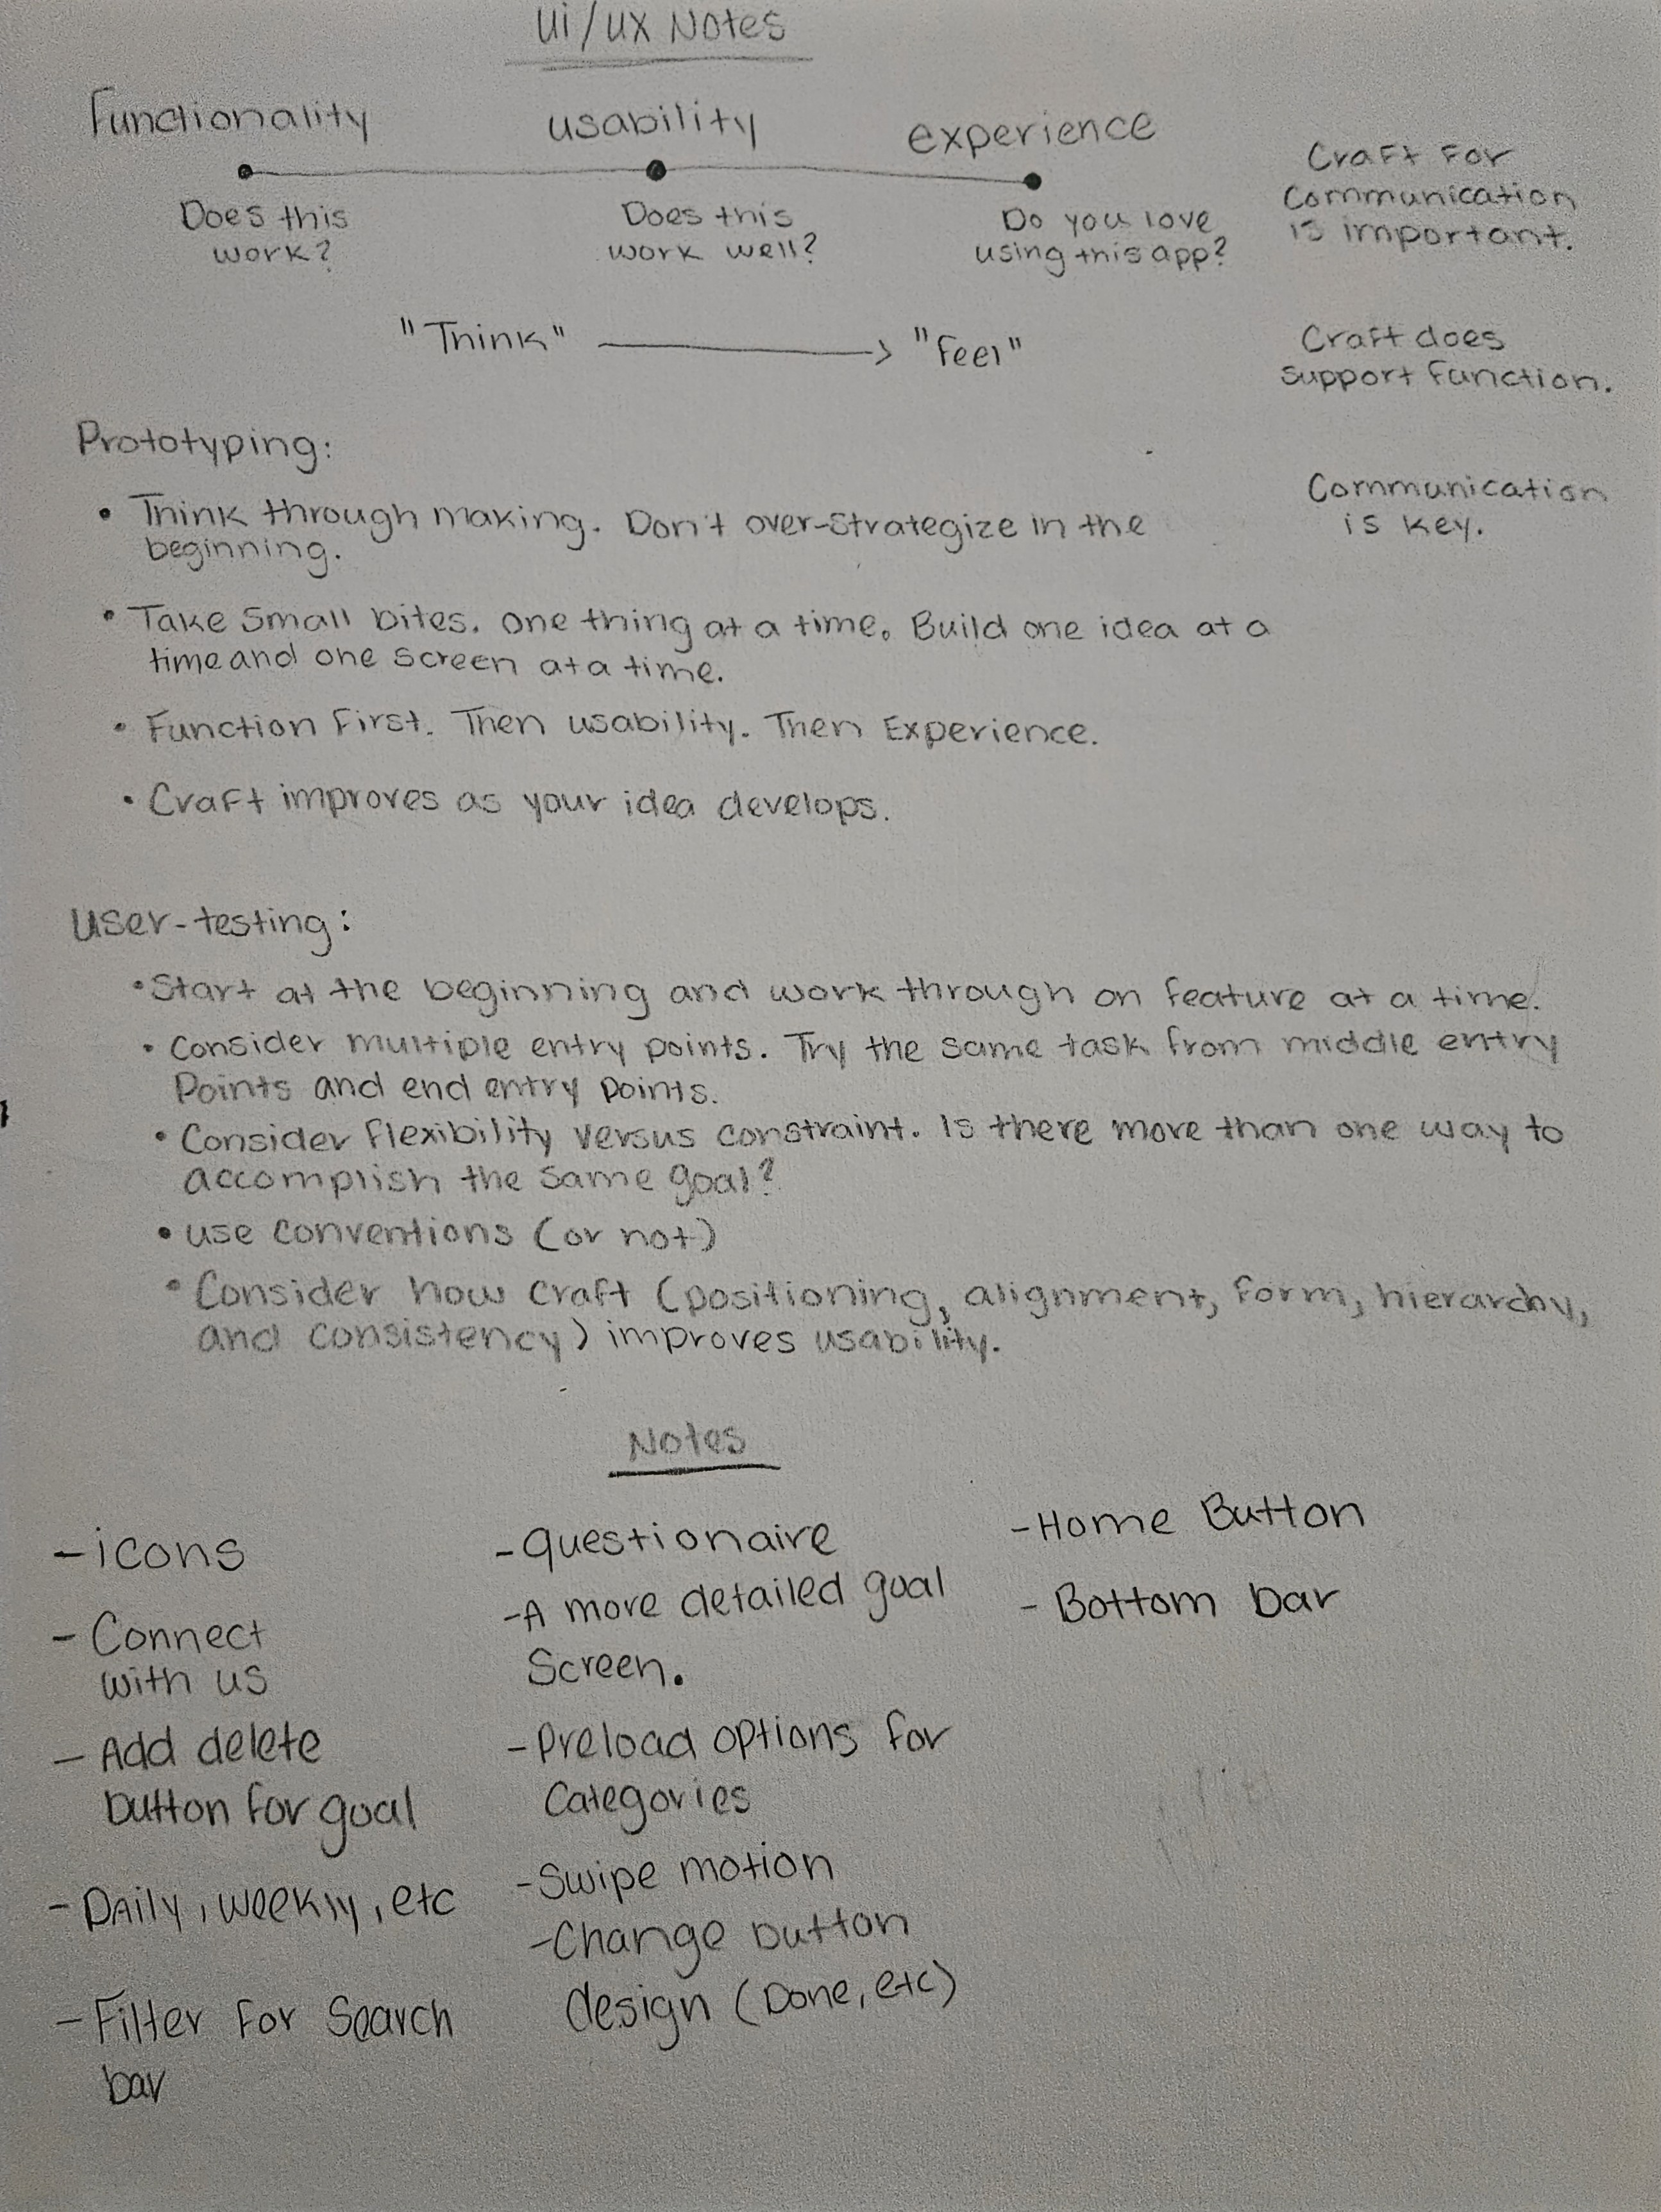 Ui/UX Notes
Functionality
usability
experience
Does this
work?
Does this
work well?
Do you love
using this app?
Craft for
Communication
is important.
"Think"
"Feel"
Craft does
support Function.
Communication
is key.
Prototyping:
• Think through making. Don't over-strategize in the
beginning.
• Take small bites. One thing at a time. Build one idea at a
time and one screen at a time.
• Function First. Then usability. Then Experience.
• Craft improves as your idea develops.
User-testing:
• Start at the beginning and work through on feature at a time.
• Consider multiple entry points. Try the same task from middle entry
Points and end entry points.
• Consider flexibility versus constraint. Is there more than one way to
accomplish the same goal?
• use conventions (or not)
• Consider how craft (positioning, alignment, form, hierarchy,
and consistency) improves usability.
Notes
- icons
- Connect
with us
- Add delete
button for goal
- Daily, weekly, etc
- Filter For Search
bar
- questionaire
- A more detailed goal
Screen.
- Preload options for
Categories
- Swipe motion
- Change button
design (Done, etc)
- Home Button
- Bottom bar